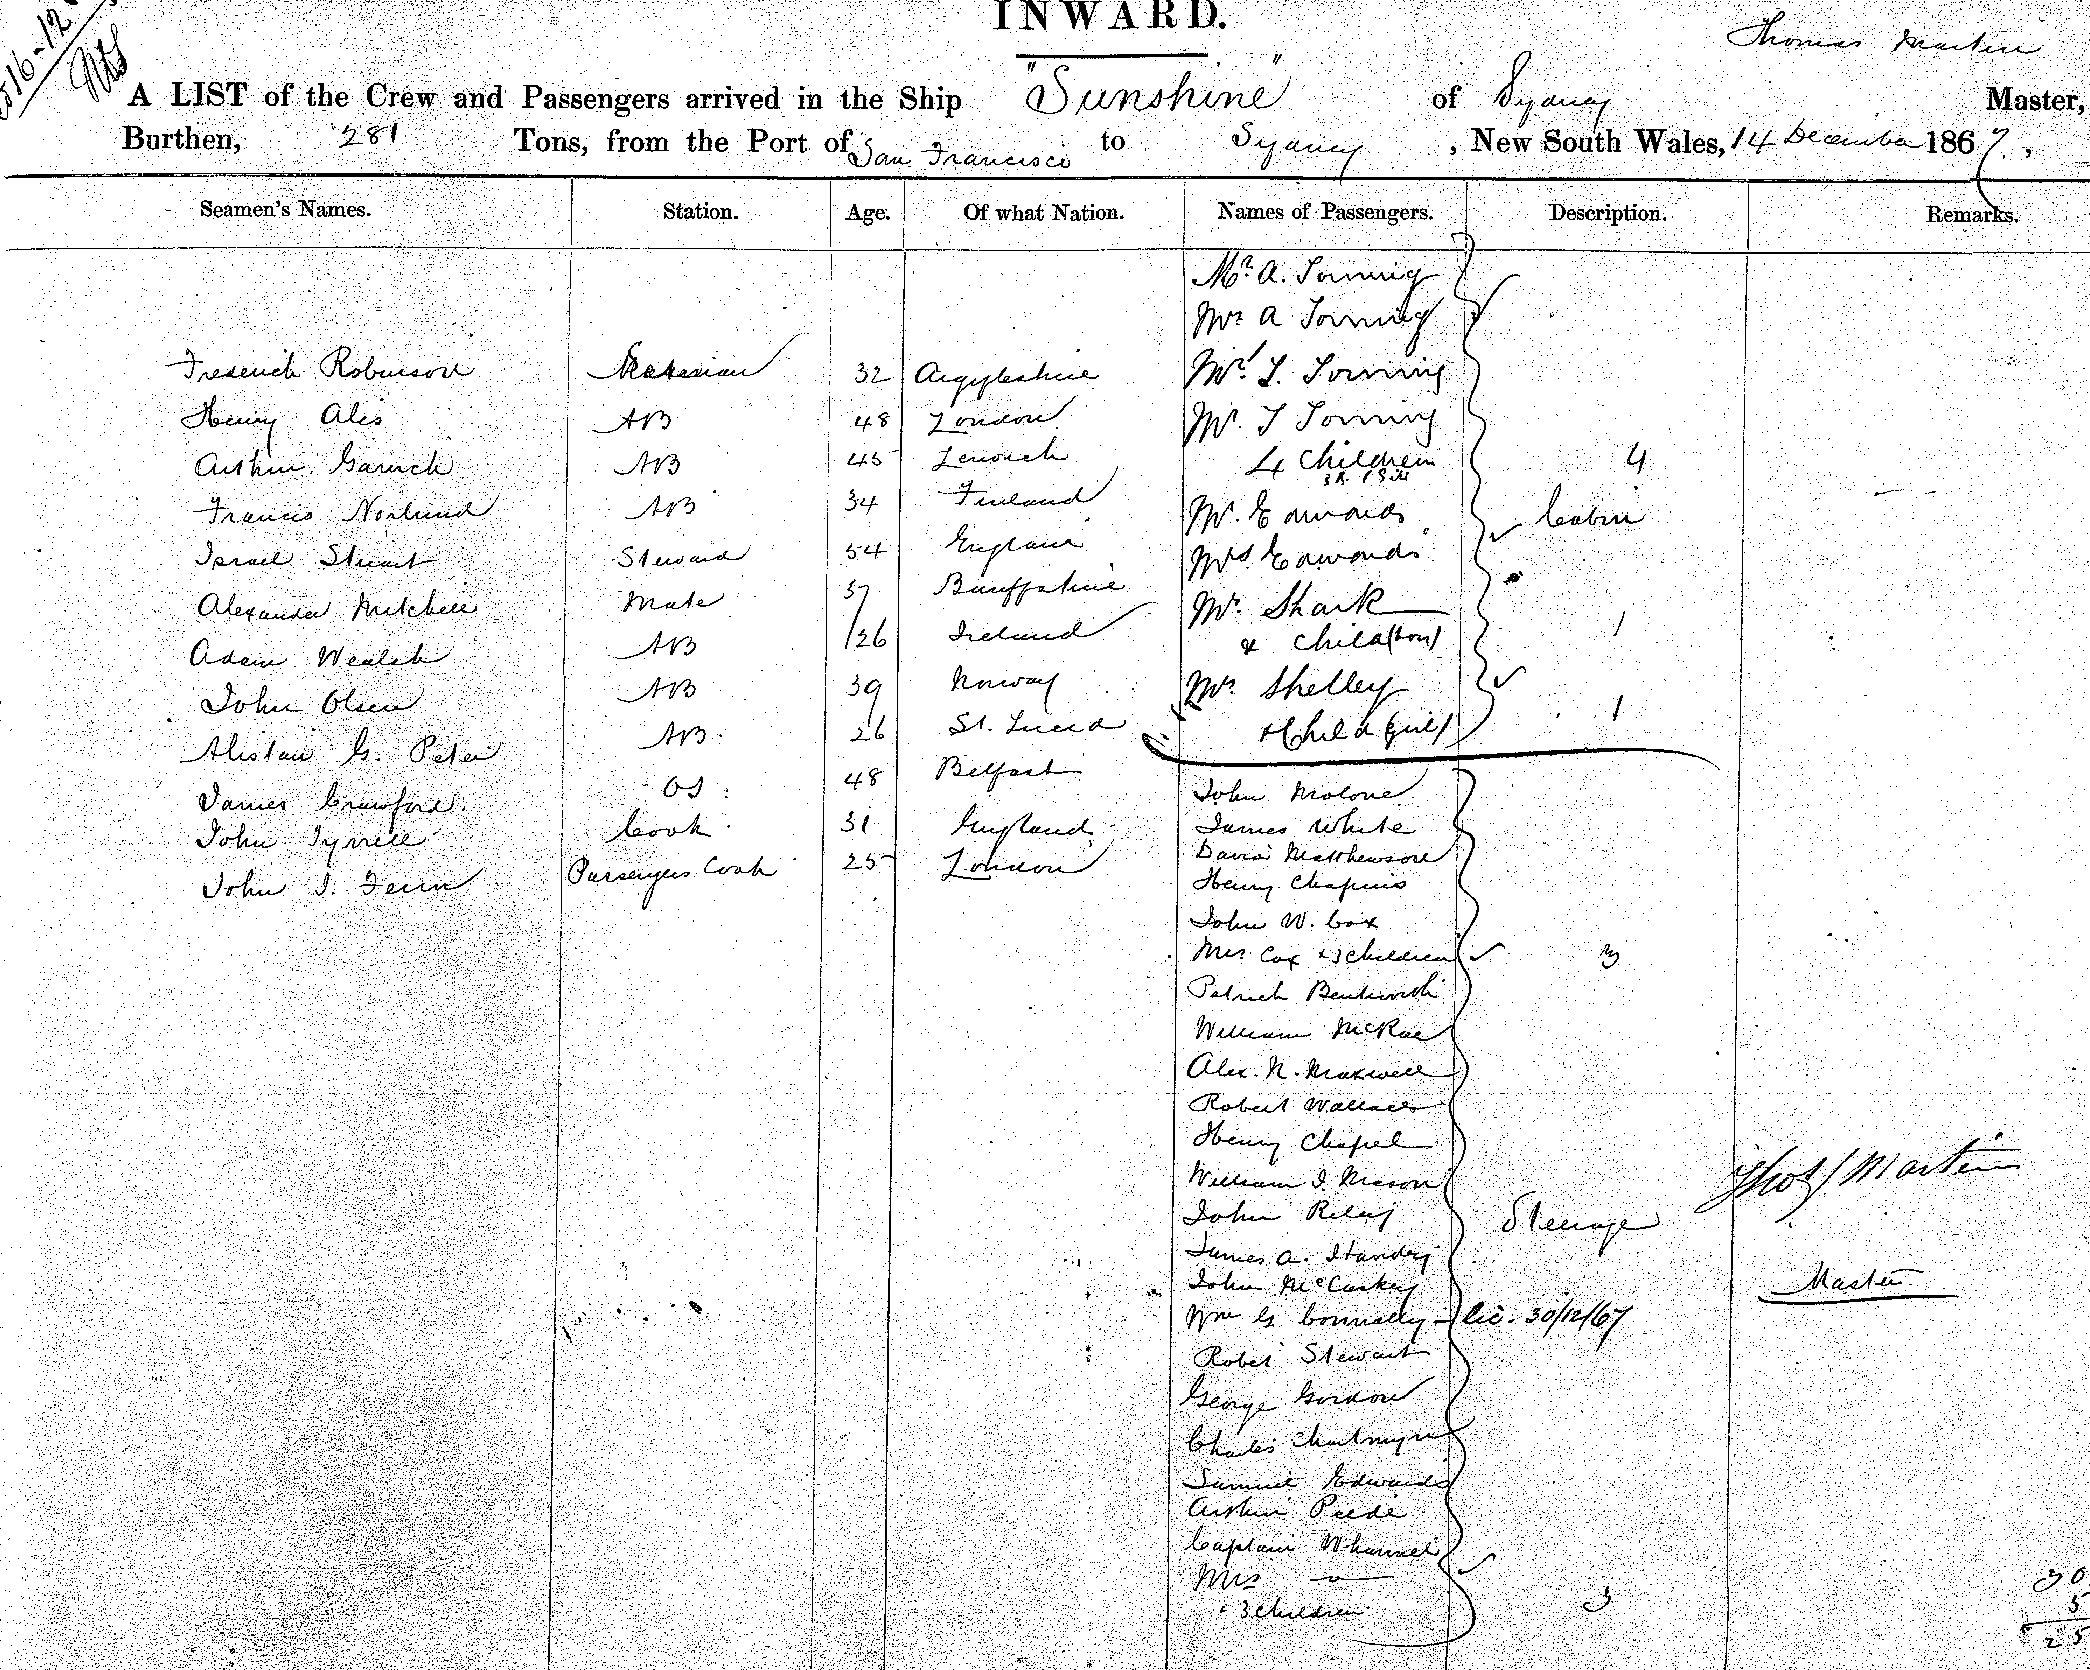 INWARD.
Thomas Martin
A LIST of the Crew and Passengers arrived in the Ship "Sunshine" of Sydney Master,
Burthen, 281 Tons, from the Port of San Francisco to Sydney, New South Wales, 14 December 1867,
Seamen's Names. Station. Age. Of what Nation. Names of Passengers. Description. Remarks.
Mr. A. Torning
Mrs A Torning
Frederick Robinson 32 Argyleshire Mr. T. Torning
Henry AB 48 London Mr. T Torning
Arthur AB 45 4 Children 4
Francis Norlund AB 34 Finland Mr. Edwards Cabin
Israel Stuart Steward 54 England Mrs Edwards
Alexander Mitchell Mate 37 Banffshire Mr. Shark
& Child (son) 1
Adam AB 26 Ireland
John Olsen AB 39 Norway Mrs Shelley
Alistair G. Peter AB 26 St. Lucia + Child (girl) 1
James Crawford OS 48 Belfast John Malone
John Tyrrell Cook 31 England James White
John J. Passengers Cook 25 London David Matthewson
Henry
John W. Cox
Mrs Cox + 3 children 3
Patrick
William McRae
Alex. N. Maxwell
Robert Wallace
Henry Chapel
William J. Mason
Thos Martin
John Riley Steerage
James A.
John McCaskey Master
Wm G Connolly 30/12/67
Robet Stewart
George Gordon
Charles
Samuel Edwards
Arthur
Captain Whannel
Mrs
+ 3 children 3
30
5
25